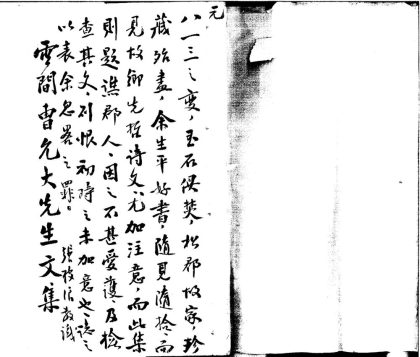 元
八一三之变，玉石俱焚，松郡故家，珍
藏殆尽，余生平好書，随見随拾，而
見故鄉先哲诗文，尤加注意，而此集
則題譙郡人，因之不甚愛護，及檢
查其文，引恨初時之未加意也，誌之
以表余忽畧之罪。
雲間曹允大先生文集